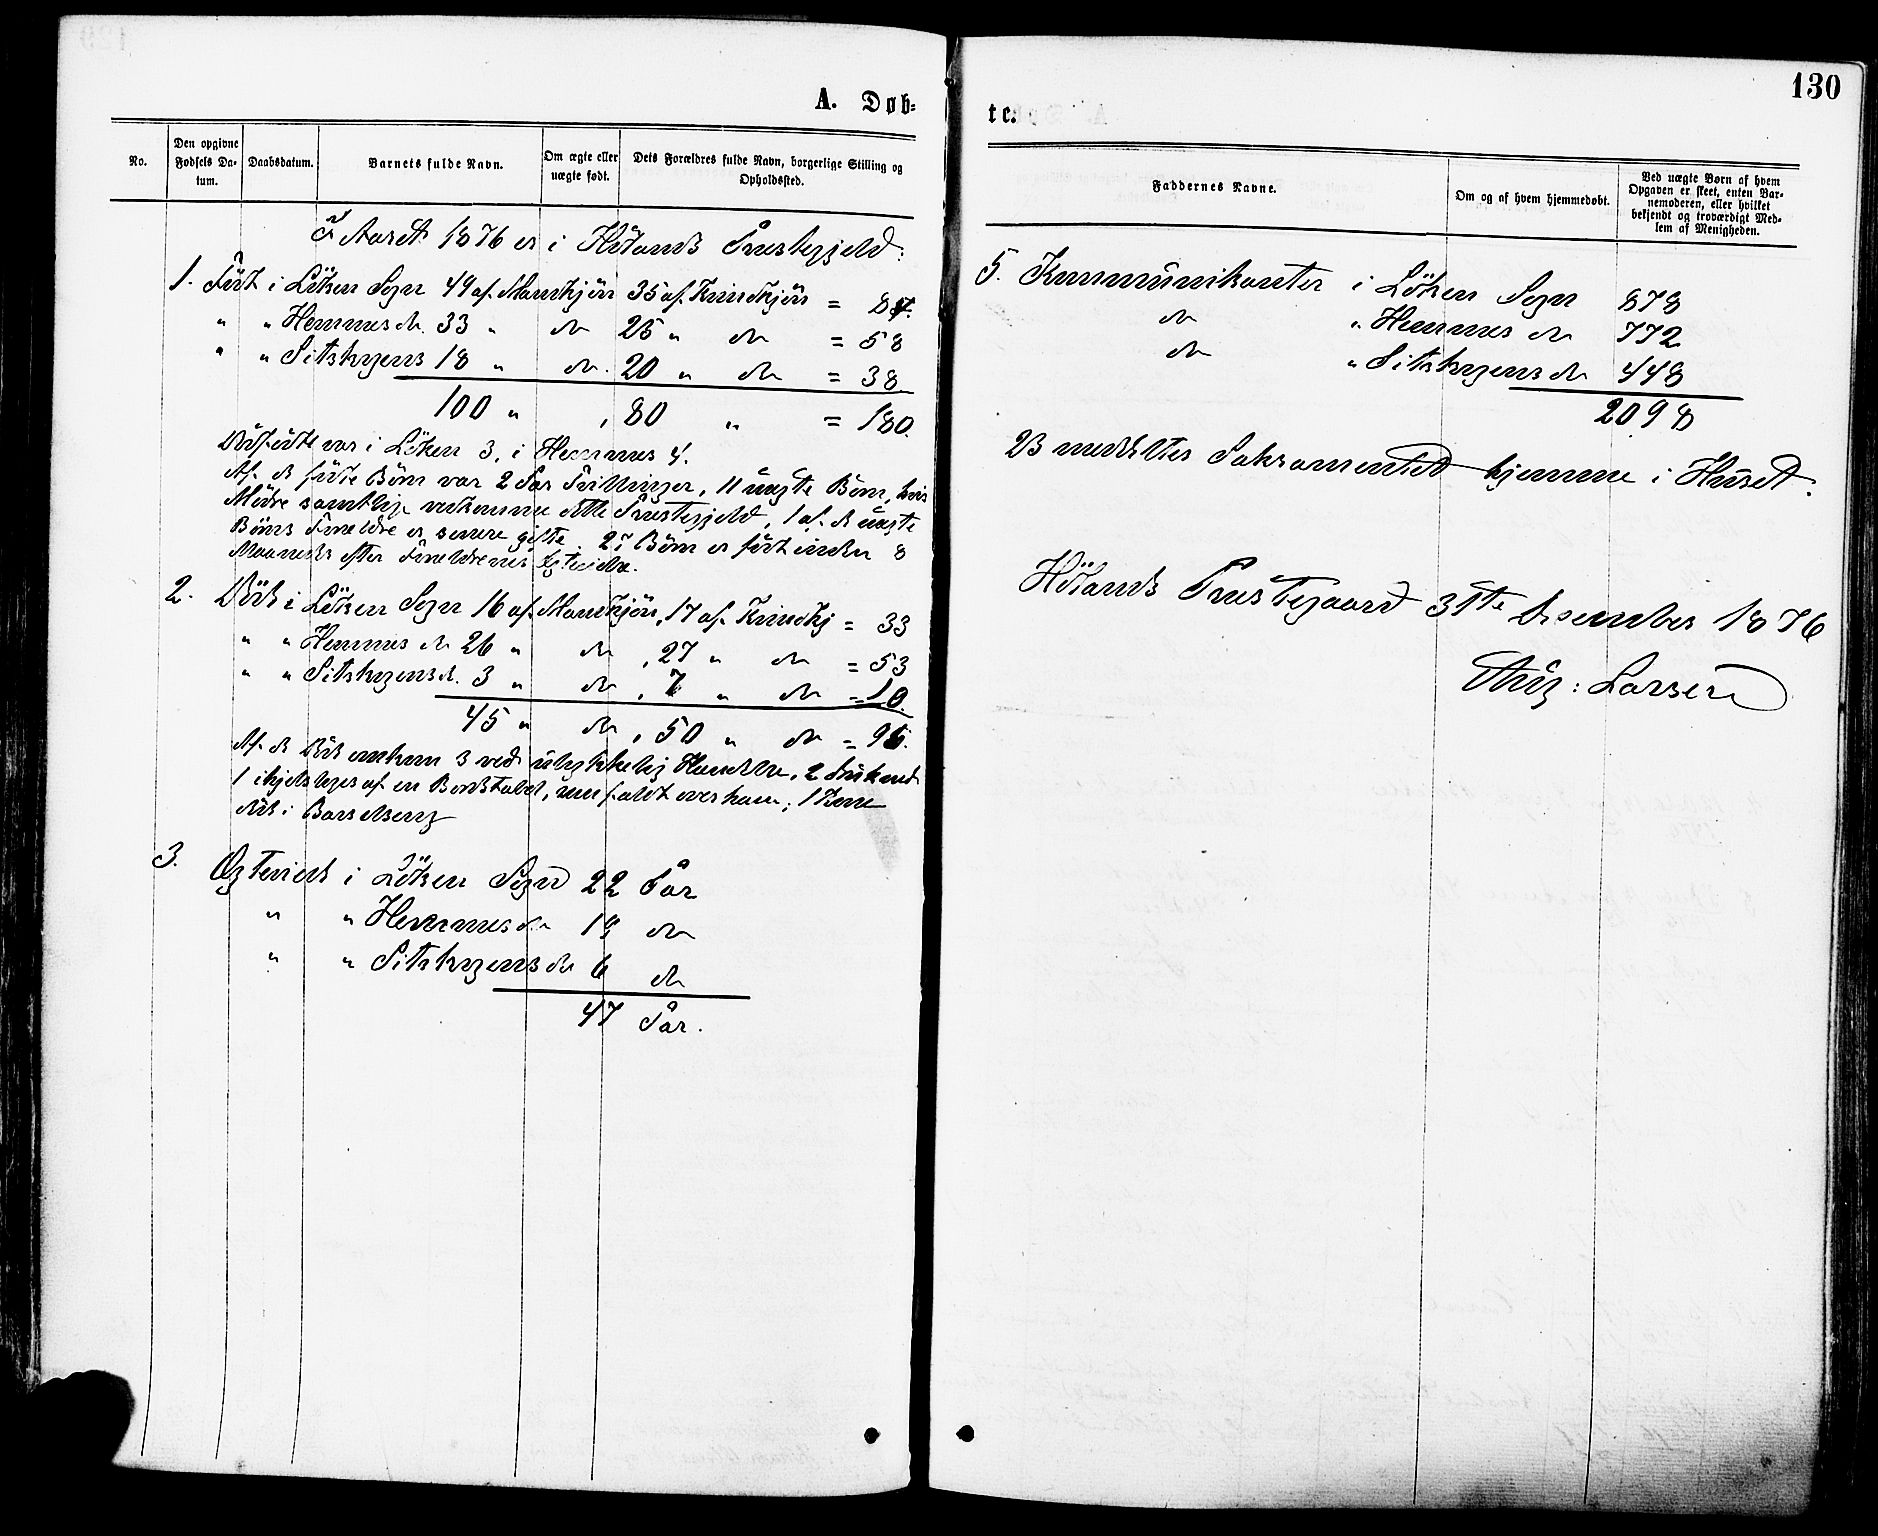 A. Døb=
No.
Den opgivne Fødsels Da-tum.
Daabsdatum.
Barnets fulde Navn.
Om ægte eller uægte født.
Dets Forældres fulde Navn, borgerlige Stilling og Opholdssted.
I Aaret 1876 er i Hölands Præstegjeld:
1. Födt i Löken Sogn 49 af Mandkjön 35 af Kvindkjön = 84.
" " Hemnes do. 33 " do 25 " do = 58
" " Sitskogens 18 " do. 20 " do = 38
100 " , 80 " = 180.
Dödfödte var i Löken 3, i Hemnes 4.
Af de födte Börn var 2 Par Tvillinger, 11 uægte Börn, hvis
Mödre samtlige vedkomme dette Præstegjeld, 1 af de uægte
Börns Forældre er senere gifte. 27 Börn er födt inden 8
Maaneder efter Forældrenes Ægtevielse.
2. Döde i Löken Sogn 16 af Mandkjön, 17 af Kvindkj = 33
" " Hemnes do 26 " do , 27 " do = 53
" " Sitskogens do. 3 " do , 7 " do = 10.
45 " do , 50 " do = 96.
Af de Döde omkom 3 ved ulykkelig Hændelse, 2 druknede
1 ihjelsloges af en Bordstabel, som faldt over ham; 1 Kone
döde i Barselseng
3. Ægteviede i Löken Sogn 22 Par
" " Hemnes do 19 do
" " Sitskogens do 6 do
47 Par.
130
te.
Faddernes Navne.
Om og af hvem hjemmedøbt.
Ved uægte Børn af hvem Opgaven er skeet, enten Bar-nemoderen, eller hvilket bekjendt og troværdigt Med-lem af Menigheden.
5. Kommunikanter i Löken Sogn 878
do " Hemnes do 772
do " Sitskogens do 448
2098
23 meddeltes Sakramentet hjemme i Huset.
Hölands Præstegaard 31te December 1876
Larsen